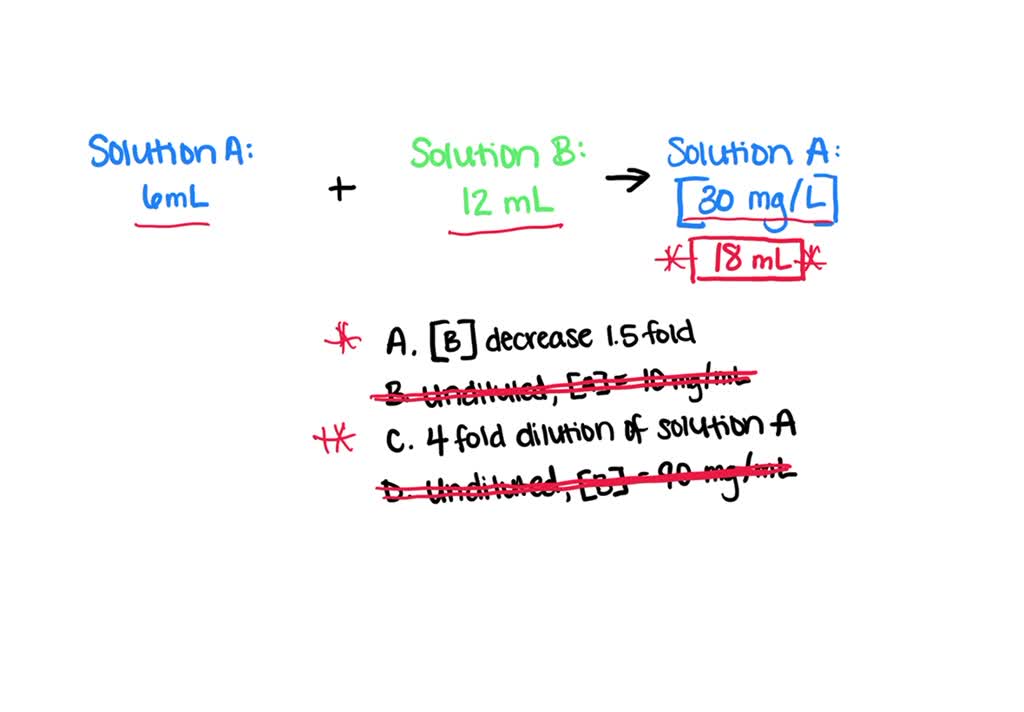 Solution A:
6mL
+
Solution B:
12 mL
→
Solution A:
[30 mg/L]
18 mL
A. [B] decrease 1.5 fold
B. Undiluted, [A] = 10 mg/mL
C. 4 fold dilution of solution A
D. Undiluted, [B] = 90 mg/mL